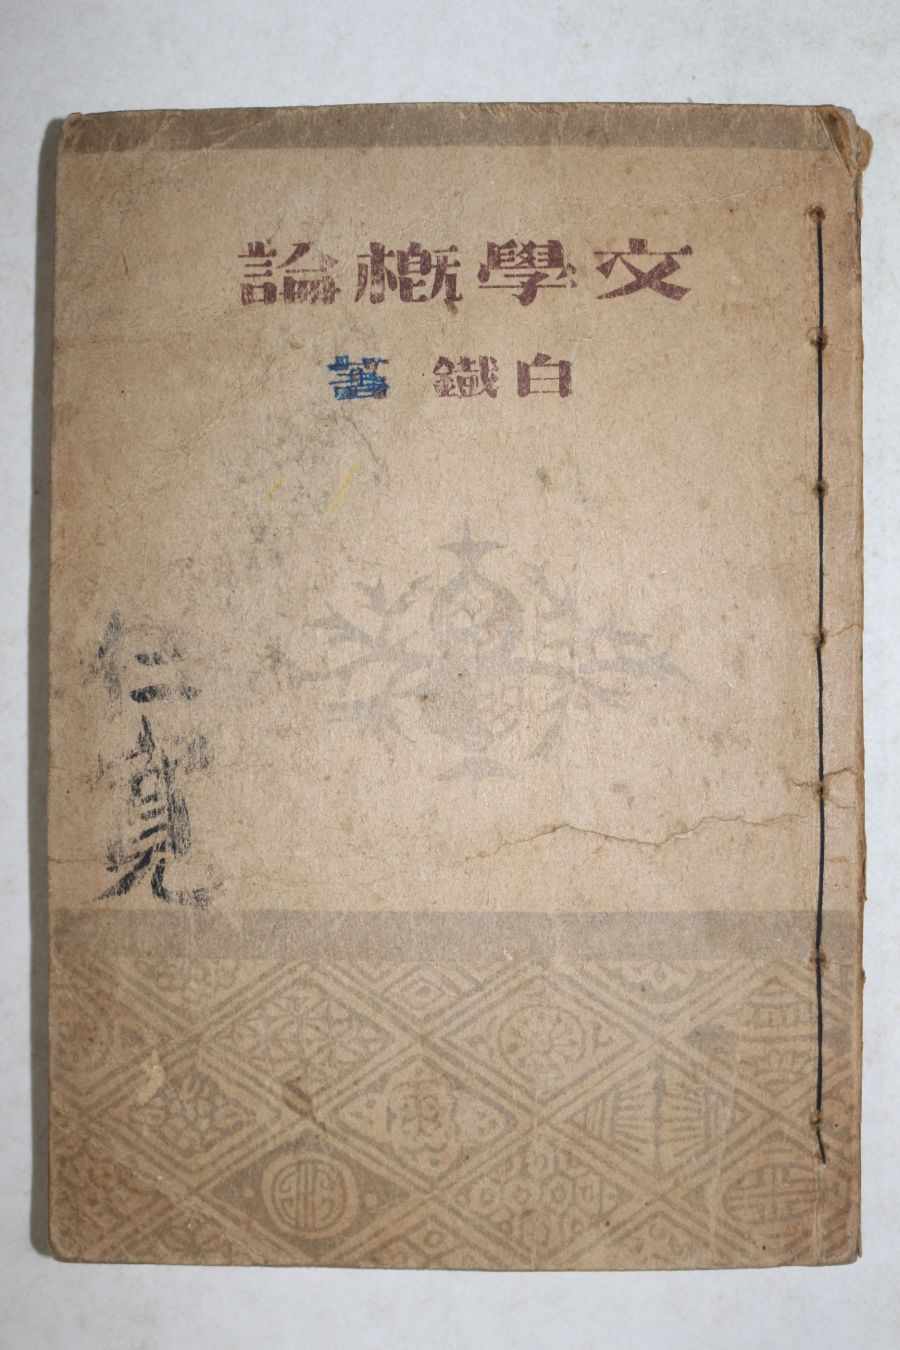 文學槪論
白鐵 著
仁寬